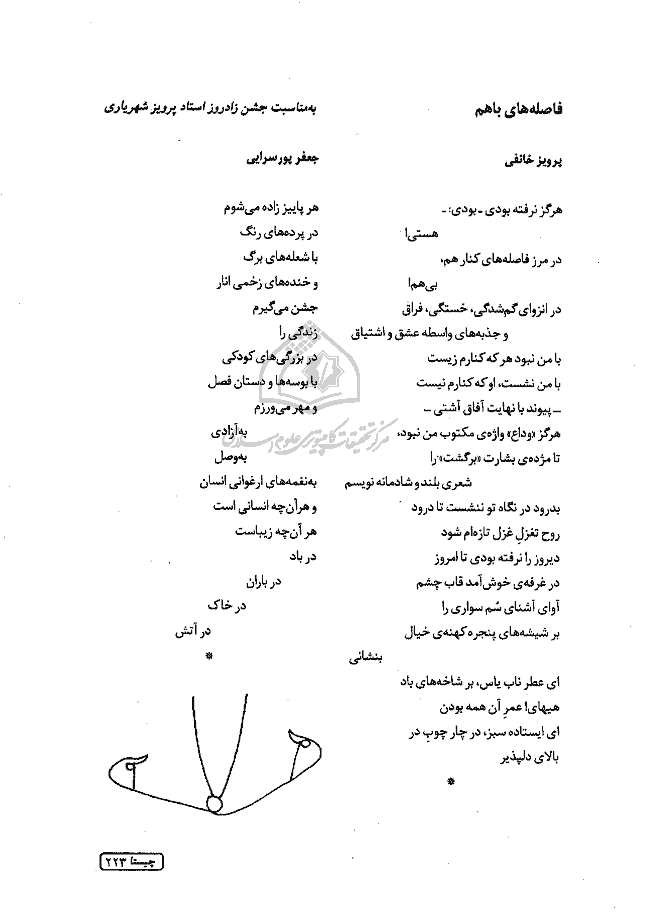 فاصله‌های باهم
پرویز خائفی
هرگز نرفته بودی ـ بودی: ـ
هستی!
در مرز فاصله‌های کنار هم،
بی‌هم!
در انزوای گم‌شدگی، خستگی، فراق
و جذبه‌های واسطه عشق و اشتیاق
با من نبود هر که کنارم زیست
با من نشست، او که کنارم نیست
ـ پیوند با نهایت آفاق آشتی ـ
هرگز «وداع» واژه‌ی مکتوب من نبود،
تا مژده‌ی بشارت «برگشت» را
شعری بلند و شادمانه نویسم
بدرود در نگاه تو ننشست تا درود
روح تغزلِ غزل تازه‌ام شود
دیروز را نرفته بودی تا امروز
در غرفه‌ی خوش‌آمد قاب چشم
آوای آشنای سُم سواری را
بر شیشه‌های پنجره کهنه‌ی خیال
بنشانی
ای عطر ناب یاس، بر شاخه‌های باد
هیهای! عمرِ آن همه بودن
ای ایستاده سبز، در چار چوبِ در
بالای دلپذیر
*
به‌مناسبت جشن زادروز استاد پرویز شهریاری
جعفر پورسرایی
هر پاییز زاده می‌شوم
در پرده‌های رنگ
با شعله‌های برگ
و خنده‌های زخمی انار
جشن می‌گیرم
زندگی را
در بزرگی‌های کودکی
با بوسه‌ها و دستان فصل
و مهر می‌ورزم
به‌آزادی
به‌وصل
به‌نغمه‌های ارغوانی انسان
و هرآن‌چه انسانی است
هر آن‌چه زیباست
در باد
در باران
در خاک
در آتش
*
مرکز تحقیقات کامپیوتری علوم اسلامی
چیستا ۲۲۳